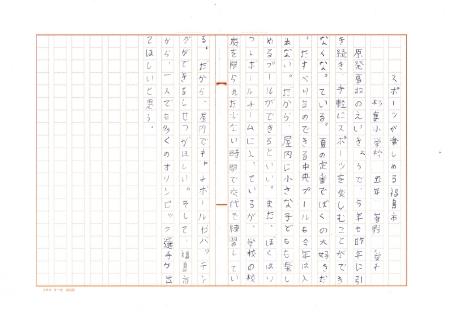 スポーツが楽しめる福島を
小学校 五年 菅野
原発事故のえいきょうで、今年も昨年に引
き続き、手軽にスポーツを楽しむことができ
なくなっている。夏の定番でぼくの大好きだ
ったすべり台のできる中央プールも今年は入
れない。だから、屋内に小さな子どもも楽し
めるプールができるといい。また、ぼくはソ
フトボールチームに入っているが、学校の校
庭を限られた少ない時間で交代で練習してい
る。だから、屋内でキャッチボールやバッティン
グができるしせつがほしい。そして、福島市
から、一人でも多くのオリンピック選手が出
てほしいと思う。